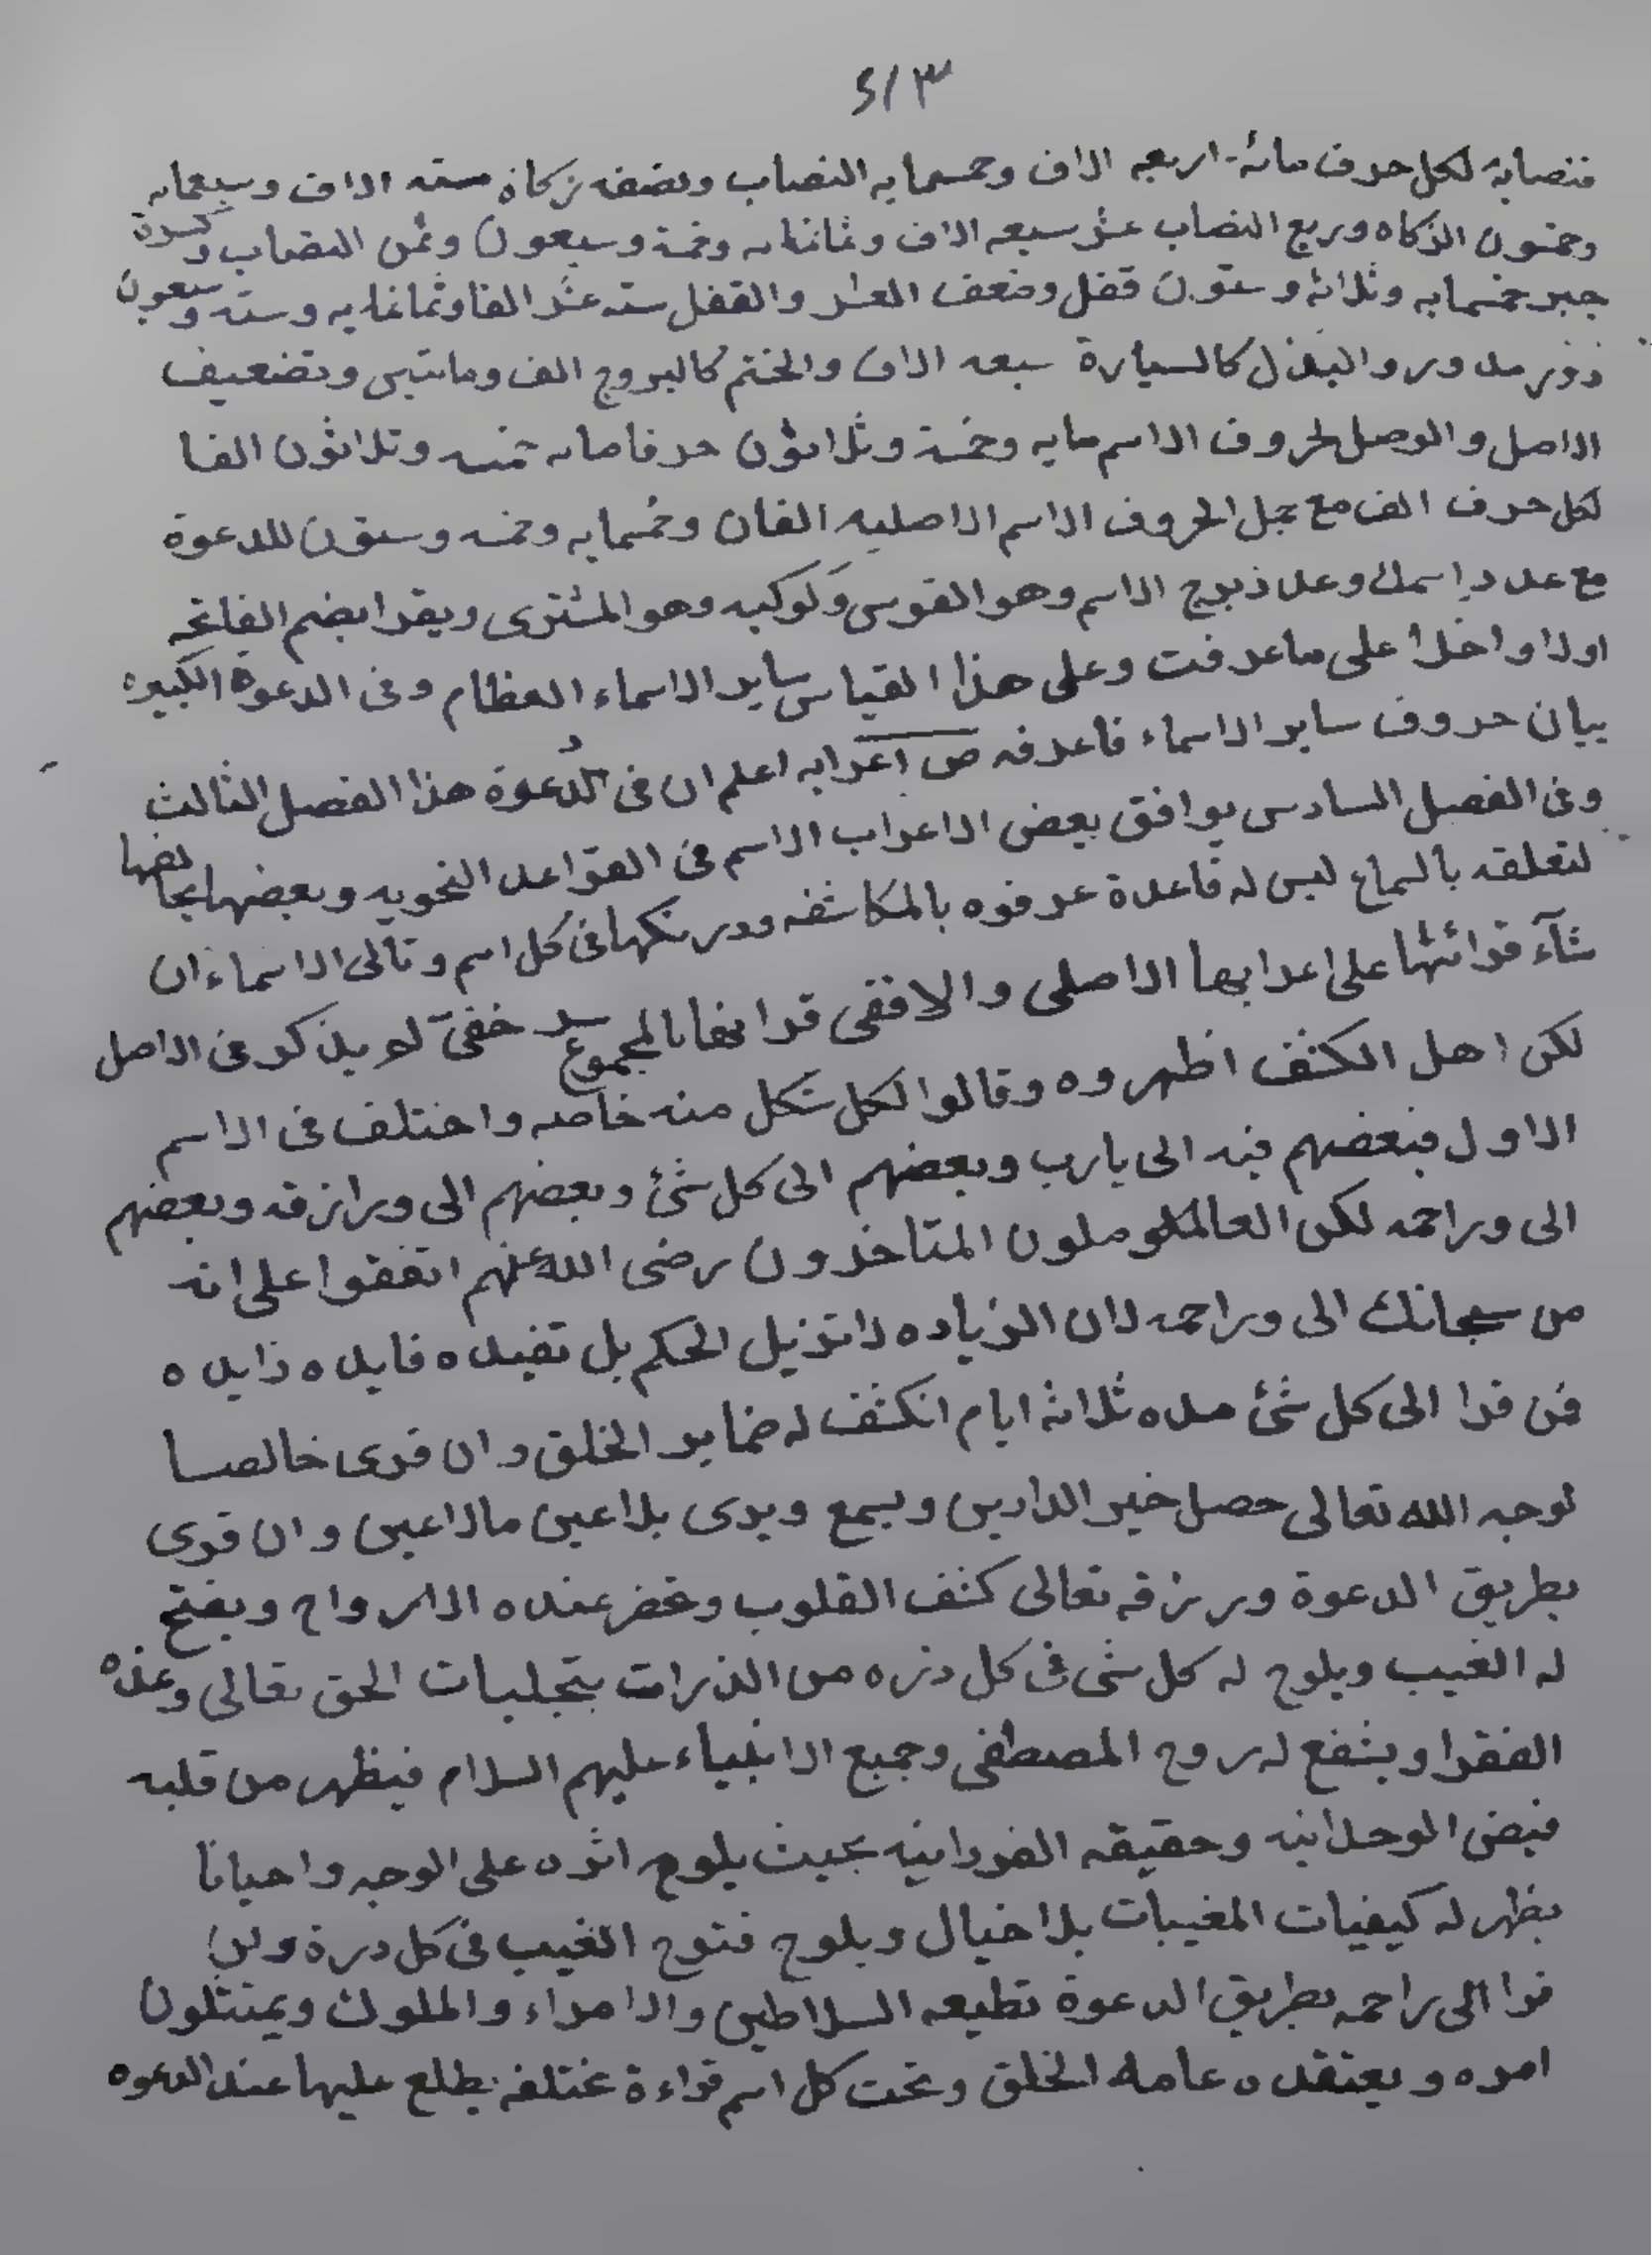 ٢١٣
فنصابه لكل حرف مائة اربعه الاف وخمسمايه النصاب ونصفه زكاة سته الاف وسبعمايه
وخمسون الزكاه وربع النصاب عشر سبعه الاف وثمانمايه وخمسة وسبعون وثمن النصاب وكسره
جبر خمسمايه وثلاثه وستون قفل وضعف العشر والقفل سته عشر الفا وثمانمايه وسته وسبعون
دور مدور والبذل كالسيارة سبعه الاف والختم كالبروج الف ومايتين وتضعيف
الاصل والوصل لحروف الاسم مايه وخمسة وثلاثون حرفا مايه خمسه وثلاثون الفا
لكل حرف الف مع جمل الحروف الاسم الاصليه الفان وخمسمايه وخمسه وستون للدعوة
مع عدد اسمك وعدد برج الاسم وهو القوس وكوكبه وهو المشترى ويقرا بضم الفاتحه
اولا واخرا على ما عرفت وعلى هذا القياس ساير الاسماء العظام وفى الدعوة الكبيره
بيان حروف ساير الاسماء فاعرفه ص اعرابه اعلم ان فى الدعوة هذا الفصل الثالث
وفى الفصل السادس يوافق بعض الاعراب الاسم فى القواعد النحويه وبعضها يخالفها
لتعلقه بالسماع ليس له قاعدة عرفوه بالمكاشفه فى كل اسم وتالى الاسماء ان
شآء قرائتها على اعرابها الاصلى والافقى قرا بالمجموع سر خفى لم يذكر فى الاصل
لكن اهل الكشف اظهروه وقالوا لكل شكل منه خاصه واختلف فى الاسم
الاول فبعضهم فيه الى يارب وبعضهم الى كل شئ وبعضهم الى ورازقه وبعضهم
الى وراحمه لكن العاملون المتاخرون رضى الله عنهم اتفقوا على انه
من سبحانك الى وراحمه لان الزياده لا تزيل الحكم بل تفيده فايده زايده
فمن قرا الى كل شئ مده ثلاثه ايام انكشف له ضماير الخلق وان قرى خالصا
لوجه الله تعالى حصل خير الدارين ويسمع ويرى بلا عين مالا عين وان قرى
بطريق الدعوة ورزقه تعالى كشف القلوب وتحضر عنده الارواح ويفتح
له الغيب ويلوح له كل شى فى كل ذره من الذرات بتجليات الحق تعالى وعنده
الفقرا ويشفع له روح المصطفى وجميع الانبياء عليهم السلام فيظهر من قلبه
فيض الوحدانيه وحقيقه الفردانيه بحيث يلوح اثره على الوجه واحيانا
يظهر له كيفيات المغيبات بلا خيال ويلوح فتوح الغيب فى كل درة ولن
قرا الى راحمه بطريق الدعوة تطيعه السلاطين والامراء والملوك ويمتثلون
امره ويعتقده عامه الخلق وتحت كل اسم قراءة مختلفه يطلع عليها عند الدعوه